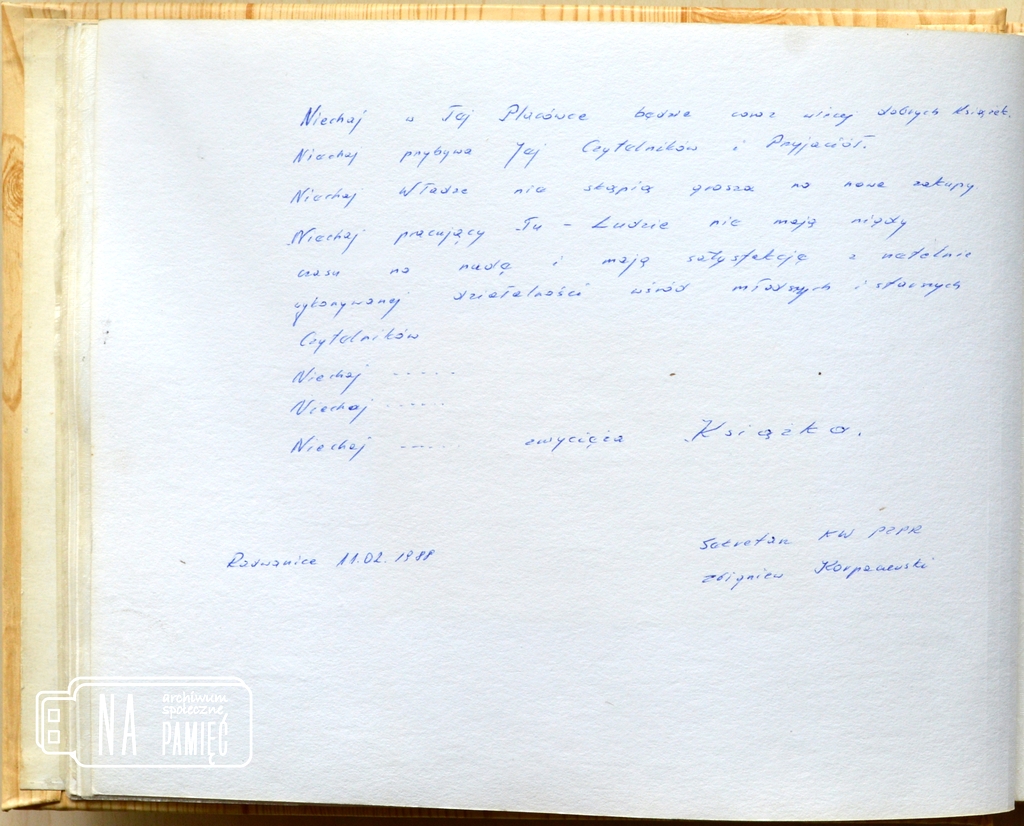 Niechaj w Tej Placówce będzie coraz więcej dobrych Książek.
Niechaj przybywa Jej Czytelników i Przyjaciół.
Niechaj Władze nie skąpią grosza na nowe zakupy
Niechaj pracujący Tu - Ludzie nie mają nigdy
czasu na nudę i mają satysfakcję z rzetelnie
wykonywanej działalności wśród młodszych i starszych
Czytelników
Niechaj -----
Niechaj -----
Niechaj ---- zwycięża Książka.
Radwanice 11.02.1988
Sekretarz KW PZPR
Zbigniew
NA
archiwum
społeczne
PAMIĘĆ